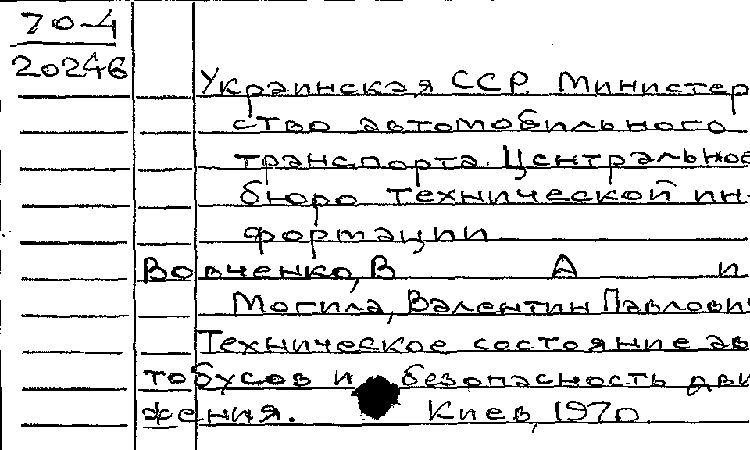 70-4
20246
Украинская ССР. Министер
ство автомобильного
транспорта. Центральное
бюро технической ин-
формации
Вовченко, В А и
Могила, Валентин Павлович
Техническое состояние ав
тобусов и безопасность дви
жения. Киев, 1970